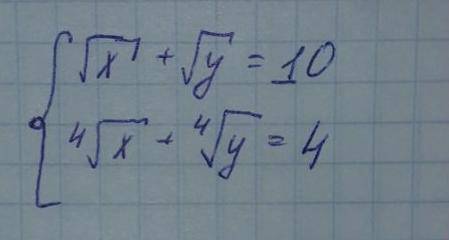 √x + √y = 10
⁴√x + ⁴√y = 4